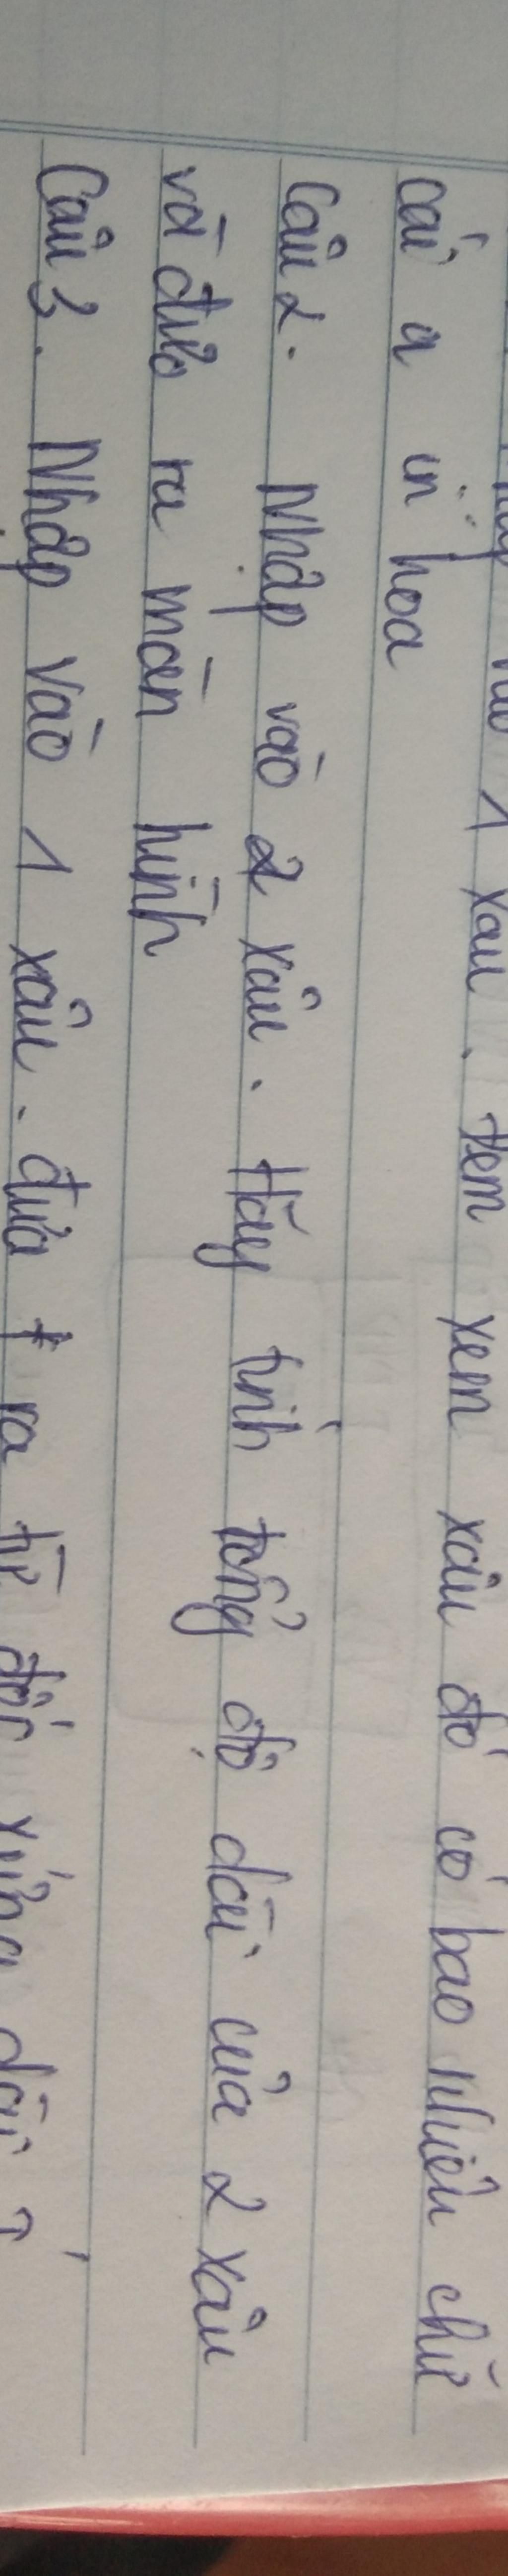 1 xâu. Đem xem xâu đó có bao nhiêu chữ
cái a in hoa
Câu 2. Nhập vào 2 xâu. Hãy tính tổng độ dài của 2 xâu
và đưa ra màn hình
Câu 3. Nhập vào 1 xâu. đưa ra từ đối xứng dài